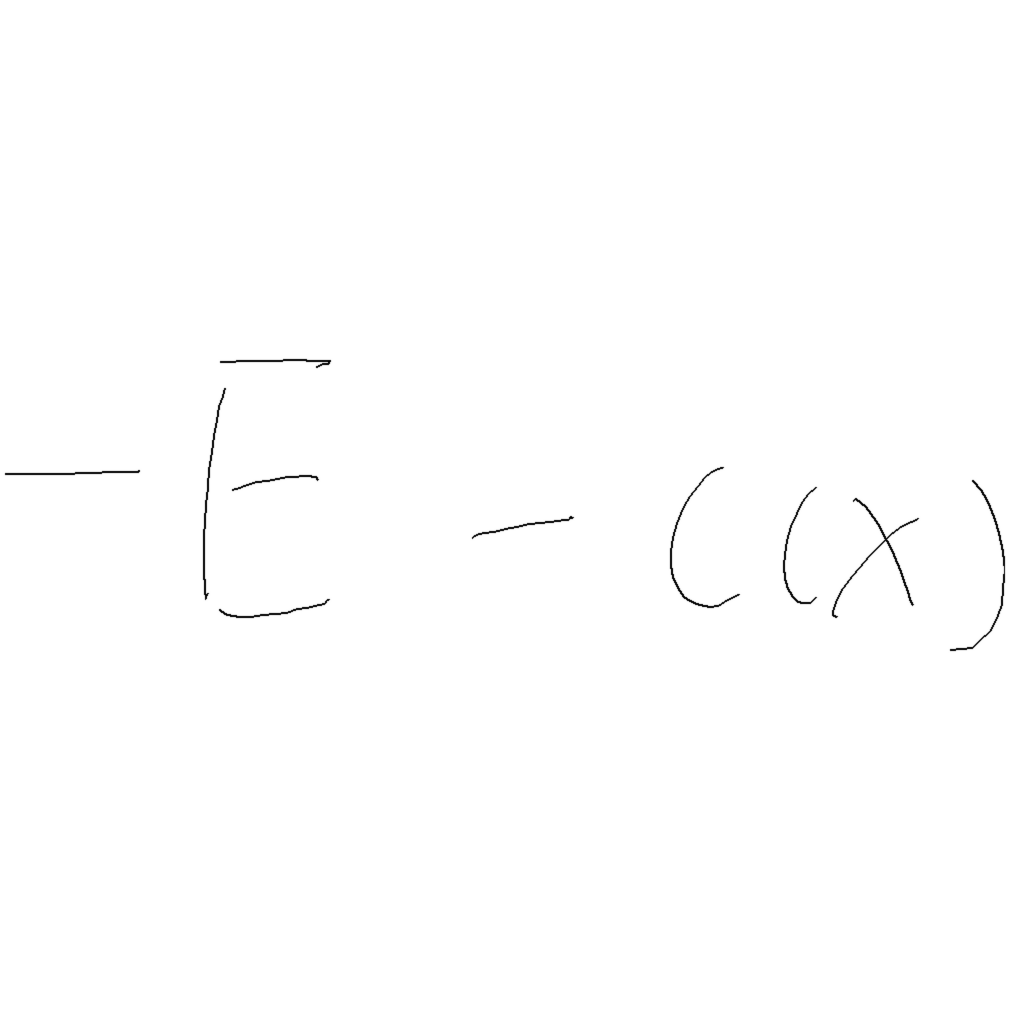 -E - c(x)